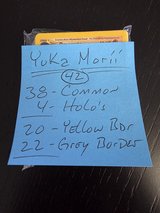 Yuka Morii
42
38 - Common
4 - Holo's
20 - Yellow Bdr
22 - Grey Border